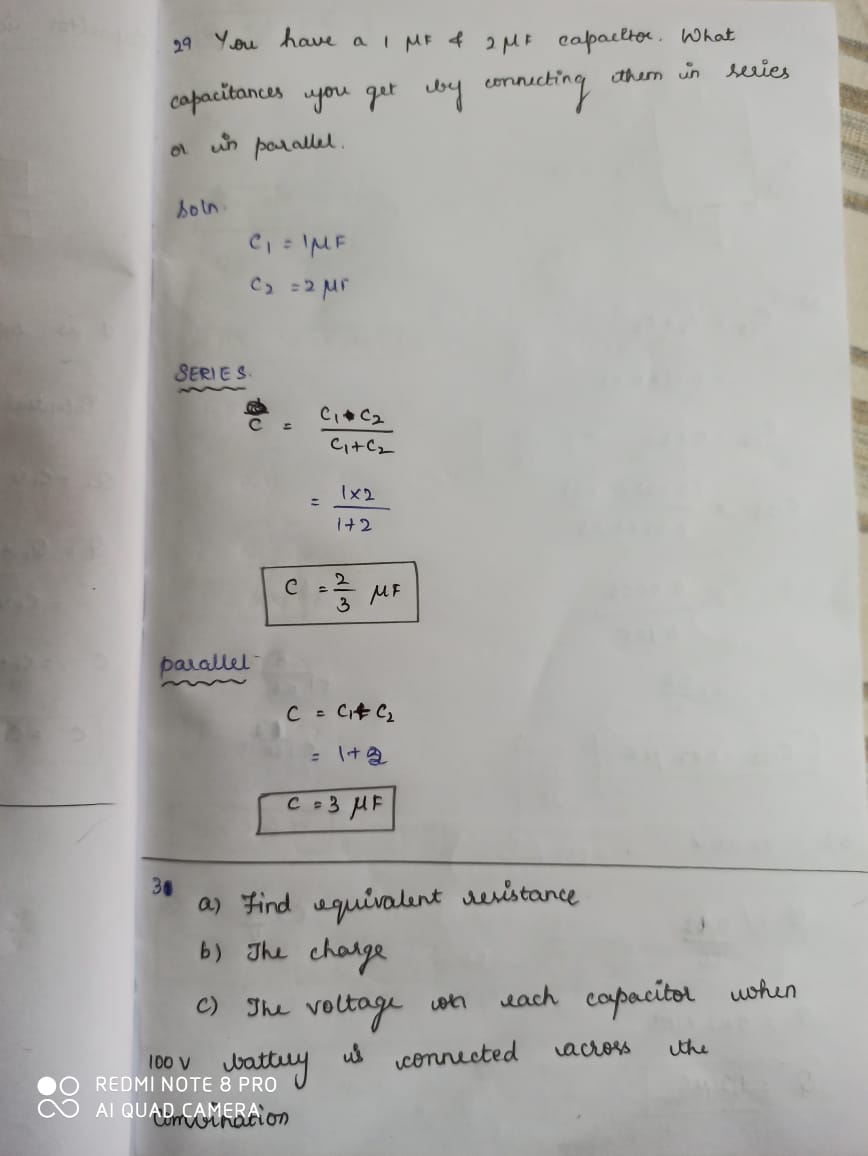 29 You have a 1 μF & 2 μF capacitor. What
capacitances you get by connecting them in series
or in parallel.
Soln.
C₁ = 1μF
C₂ = 2 μF
SERIES.
C = C₁ • C₂ / C₁+C₂
= 1×2 / 1+2
C = 2/3 μF
parallel
C = C₁+ C₂
= 1+2
C = 3 μF
30
a) Find equivalent resistance
b) The charge
c) The voltage on each capacitor when
100 V battery is connected across the
combination
REDMI NOTE 8 PRO
AI QUAD CAMERA